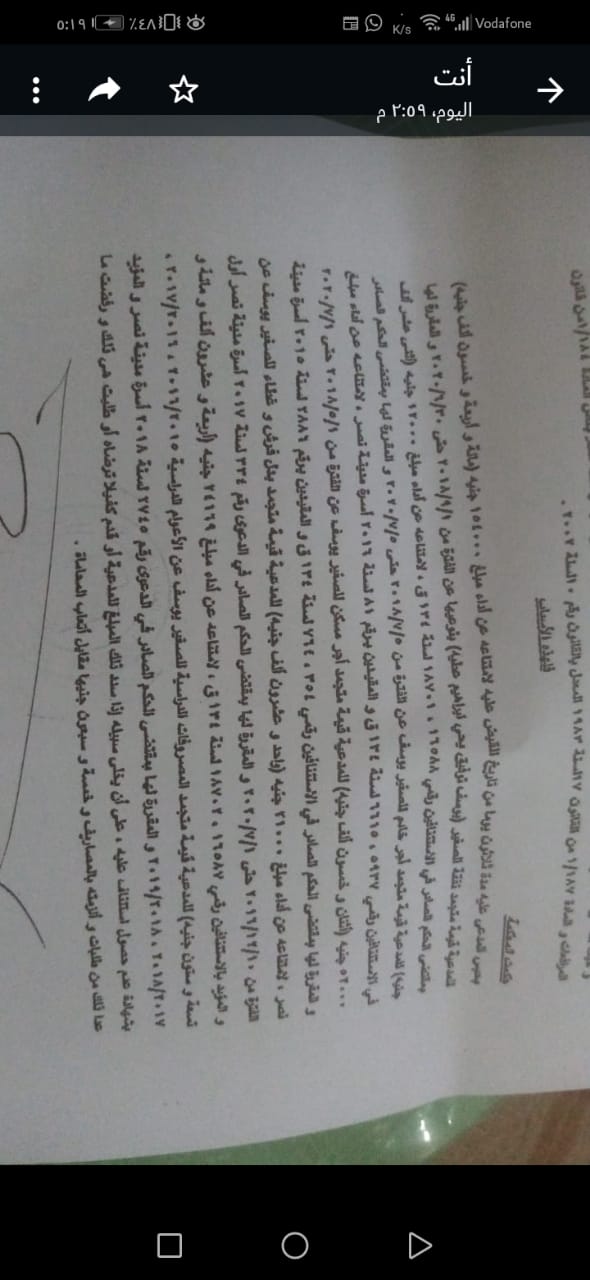 ٥:١٩
٪٤٨
K/s
4G
Vodafone
أنت
اليوم، ٢:٥٩ م
المادة ١/١٨٤ من قانون
المرافعات و المادة ١/١٨٧ من القانون ١٧ لسنة ١٩٨٣ المعدل بالقانون رقم ١٠ لسنة ٢٠٠٢ .
فلهذه الأسباب
حكمت المحكمة
بحبس المدعى عليه مدة ثلاثون يوما من تاريخ القبض عليه لامتناعه عن أداء مبلغ ١٥٤٠٠٠ جنيه (مائة و أربعة و خمسون ألف جنيه)
للمدعية قيمة متجمد نفقة الصغير (يوسف توفيق يحي ابراهيم عطيه) بنوعيها عن الفترة من ٢٠١٨/٩/١ حتى ٢٠٢٠/٦/٣٠ و المقررة لها
بمقتضى الحكم الصادر في الاستئنافين رقمي ١٦٥٨٨ ، ١٨٧٠١ لسنة ١٣٤ ق ، لامتناعه عن أداء مبلغ ١٢٠٠٠ جنيه (اثنى عشر ألف
جنيه) للمدعية قيمة متجمد أجر خادم للصغير يوسف عن الفترة من ٢٠١٨/٧/٥ حتى ٢٠٢٠/٧/٥ و المقررة لها بمقتضى الحكم الصادر
في الاستئنافين رقمي ٥٩٣٧ ، ٦٦١٥ لسنة ١٣٤ ق و المقيدين برقم ٨١ لسنة ٢٠١٦ أسرة مدينة نصر ، لامتناعه عن أداء مبلغ
٥٢٠٠٠ جنيه (اثنان و خمسون ألف جنيه) للمدعية قيمة متجمد أجر مسكن للصغير يوسف عن الفترة من ٢٠١٨/٥/١ حتى ٢٠٢٠/٧/١
و المقررة لها بمقتضى الحكم الصادر في الاستئنافين رقمي ٣٥٤ ، ٧٦٤ لسنة ١٣٤ ق و المقيدين برقم ٢٨٨٦ لسنة ٢٠١٥ أسرة مدينة
نصر ، لامتناعه عن أداء مبلغ ٢١٠٠٠ جنيه (واحد و عشرون ألف جنيه) للمدعية قيمة متجمد بدل فرش و غطاء للصغير يوسف عن
الفترة من ٢٠١٦/١٢/١٠ حتى ٢٠٢٠/٧/١ و المقررة لها بمقتضى الحكم الصادر في الدعوى رقم ٣٣٤ لسنة ٢٠١٧ أسرة مدينة نصر أول
و المؤيد بالاستئنافين رقمي ١٦٥٨٧ ، ١٨٧٠٢ لسنة ١٣٤ ق ، لامتناعه عن أداء مبلغ ٢٤١٦٩ جنيه (أربعة و عشرون ألف و مائة و
تسعة و ستون جنيه) للمدعية قيمة متجمد المصروفات الدراسية للصغير يوسف عن الأعوام الدراسية ٢٠١٦/٢٠١٥ ، ٢٠١٧/٢٠١٦ ،
٢٠١٨/٢٠١٧ ، ٢٠١٩/٢٠١٨ و المقررة لها بمقتضى الحكم الصادر في الدعوى رقم ٢٧٤٥ لسنة ٢٠١٨ أسرة مدينة نصر و المؤيد
بشهادة عدم حصول استئناف عليه ، على أن يخلى سبيله إذا سدد تلك المبلغ للمدعية أو قدم كفيلا ترضاه أو طلبت هي ذلك و رفضت ما
عدا ذلك من طلبات و ألزمته بالمصاريف و خمسة و سبعون جنيها مقابل أتعاب المحاماة .